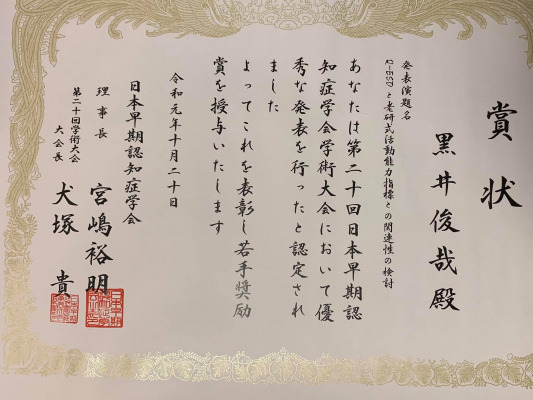 賞状
黒井俊哉殿
発表演題名
R-ESDと老研式活動能力指標との関連性の検討
あなたは第二十回日本早期認
知症学会学術大会において優
秀な発表を行ったと認定され
ました
よってこれを表彰し若手奨励
賞を授与いたします
令和元年十月二十日
日本早期認知症学会
理事長 宮嶋裕明
第二十回学術大会
大会長 犬塚貴